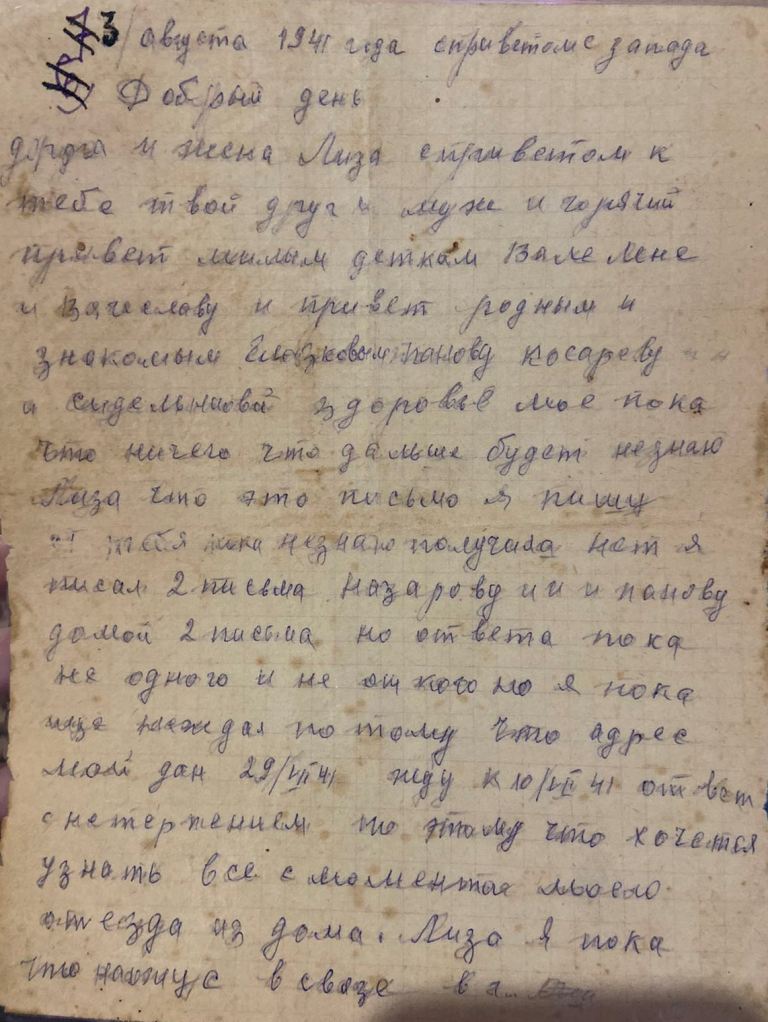 3/августа 1941 года с приветом с запада
Добрый день
дорога и жена Лиза с приветом к
тебе твой друг и муж и горячий
привет милым деткам Вале Лене
и Вячеславу и привет родным и
знакомым панову косареву
и сидельниовой здоровье мое пока
что ничего что дальше будет незнаю
Лиза что это письмо я пишу
тебя пока незнаю получила нет я
писал 2 письма Назарову и и и панову
домой 2 письма но ответа пока
не одного и не от кого но я пока
еще неждал по тому что адрес
мой дан 29/VII 41 жду к 10/VIII 41 ответ
с нетерпением по этому что хочется
узнать все с момента моего
отезда из дома. Лиза я пока
что нахжус в связе в